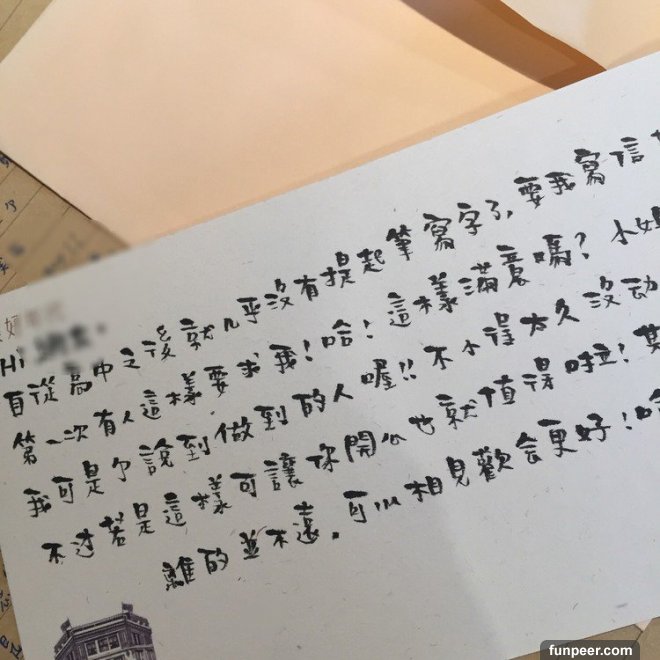 Hi
自從高中之後就几乎沒有提起筆寫字了,要我寫信
第一次有人這樣要求我!哈!這樣滿意嗎?小姐
我可是个說到做到的人喔!!不小得太久沒动
不过若是這樣可讓你開心也就值得啦!其
離的並不遠。可以相見歡会更好!哈
funpeer.com